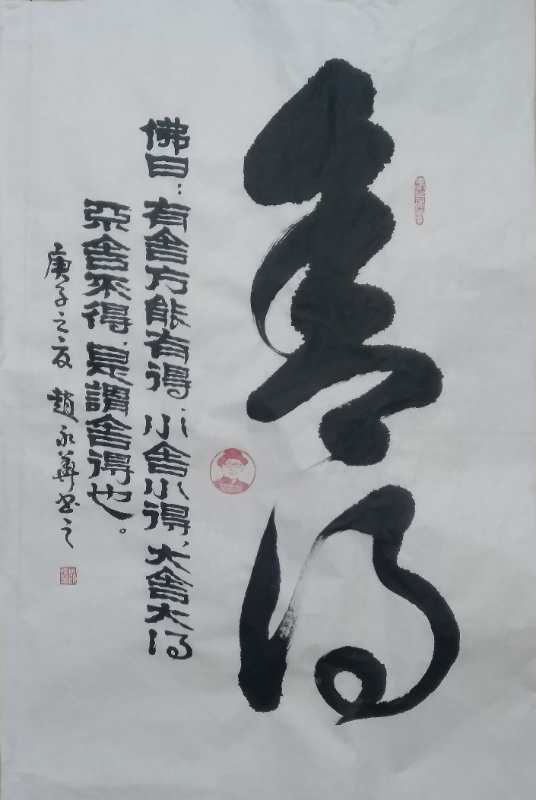 舍得
佛曰：有舍方能有得，小舍小得，大舍大得
不舍不得，是謂舍得也。
庚子之夜 趙永華書之